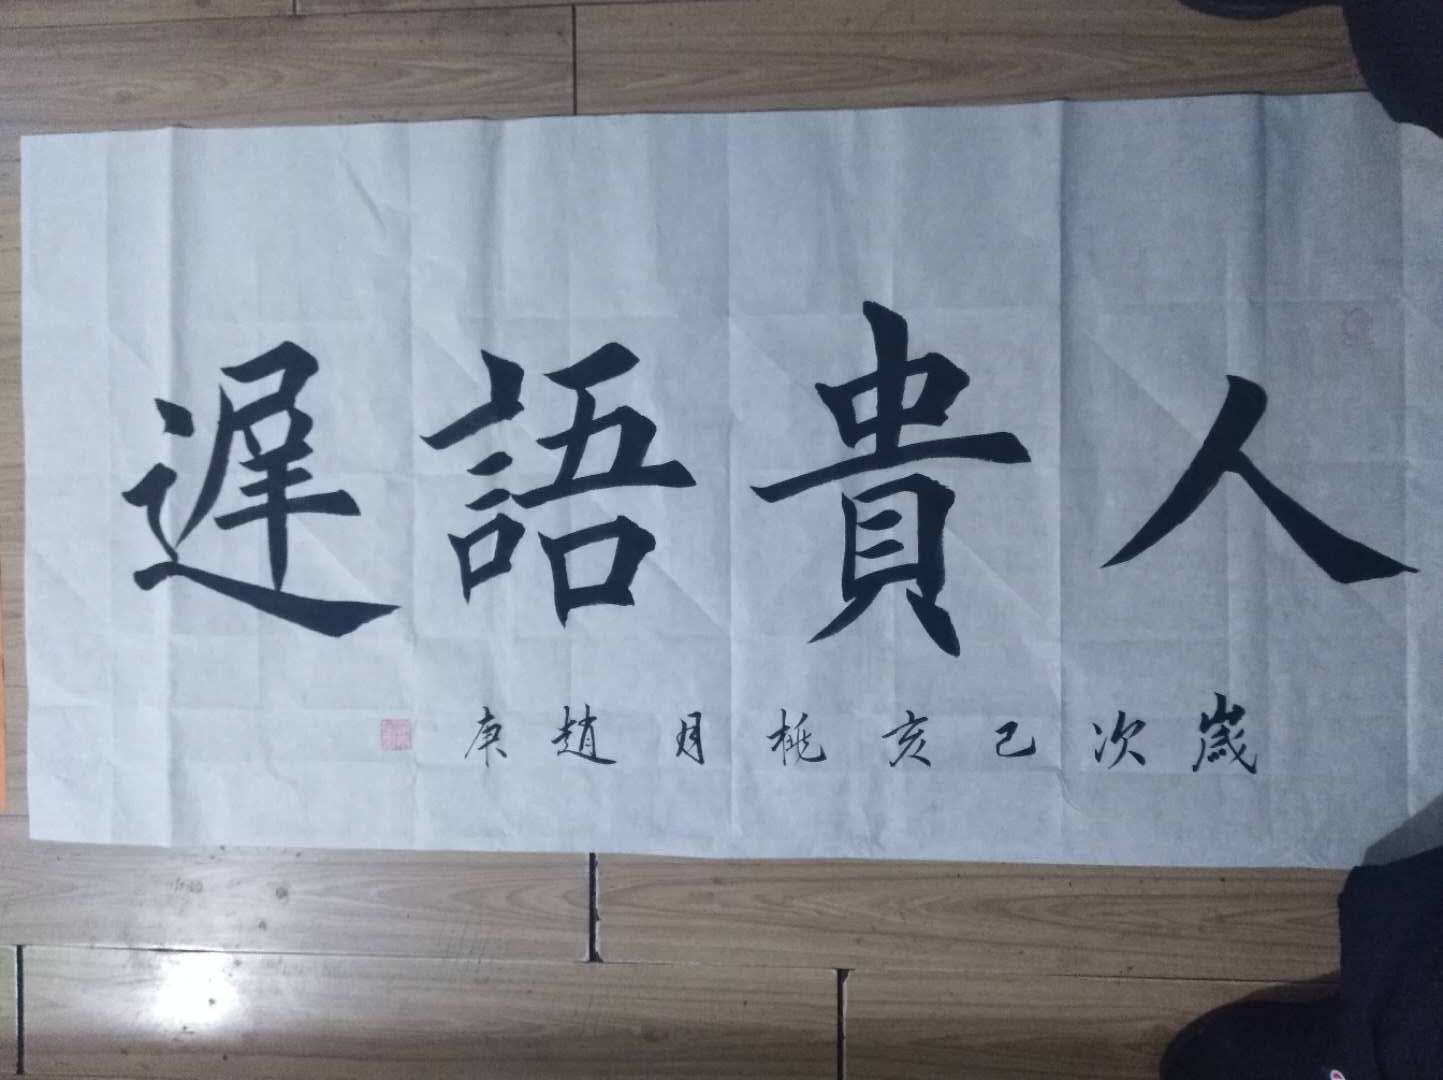 人貴語遲
歲次己亥桃月趙庚